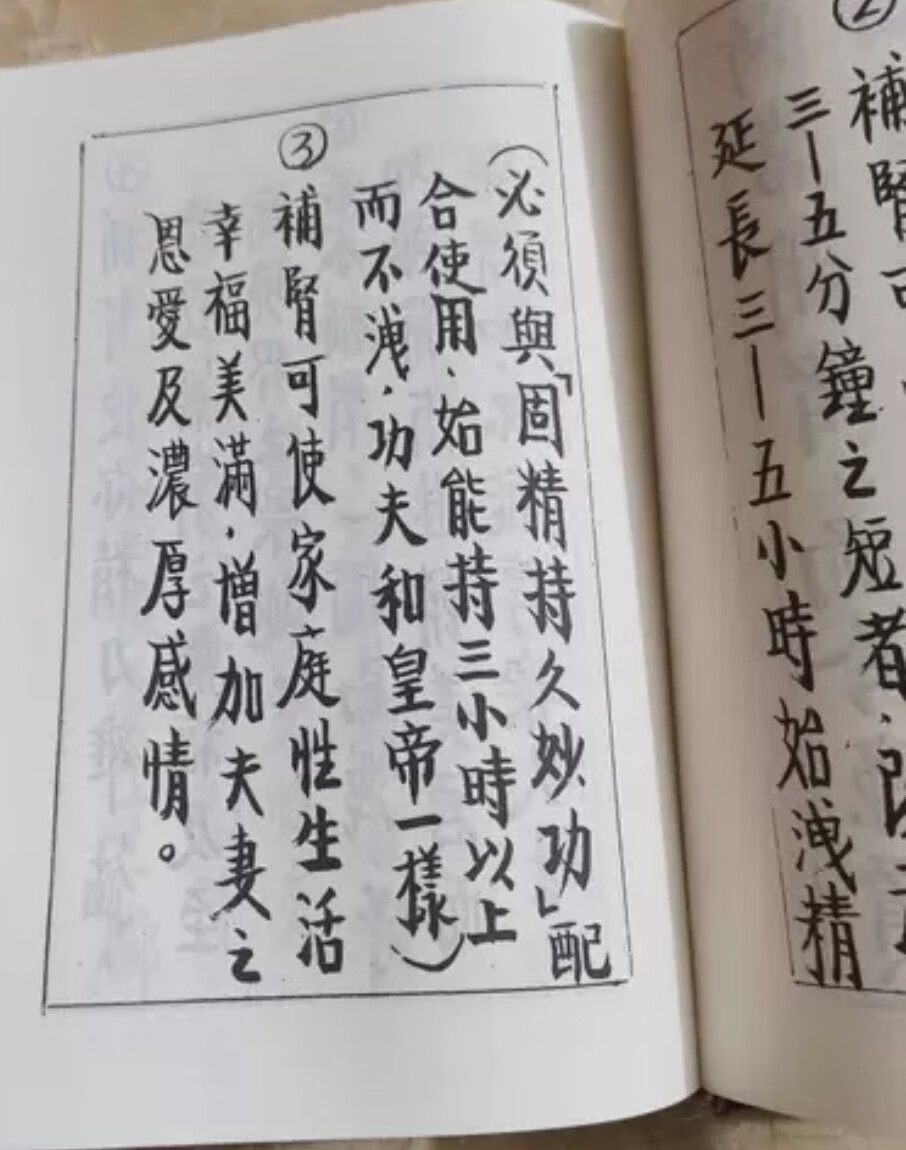 ②
補腎可
三—五分鐘之短者、
延長三—五小時始洩精
（必須與「固精持久妙功」配
合使用、始能持三小時以上
而不洩、功夫和皇帝一樣）
③
補腎可使家庭性生活
幸福美滿、增加夫妻之
恩愛及濃厚感情。